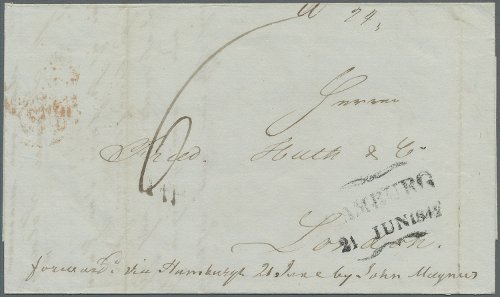 Herren
Fried. Huth & Co.
HAMBURG
21 JUN 1842
London.
forward.d via Hamburgh 21 June by John Magnus